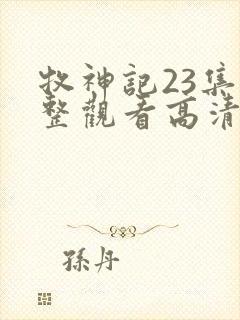 牧神記23集
整觀看高清
孫丹